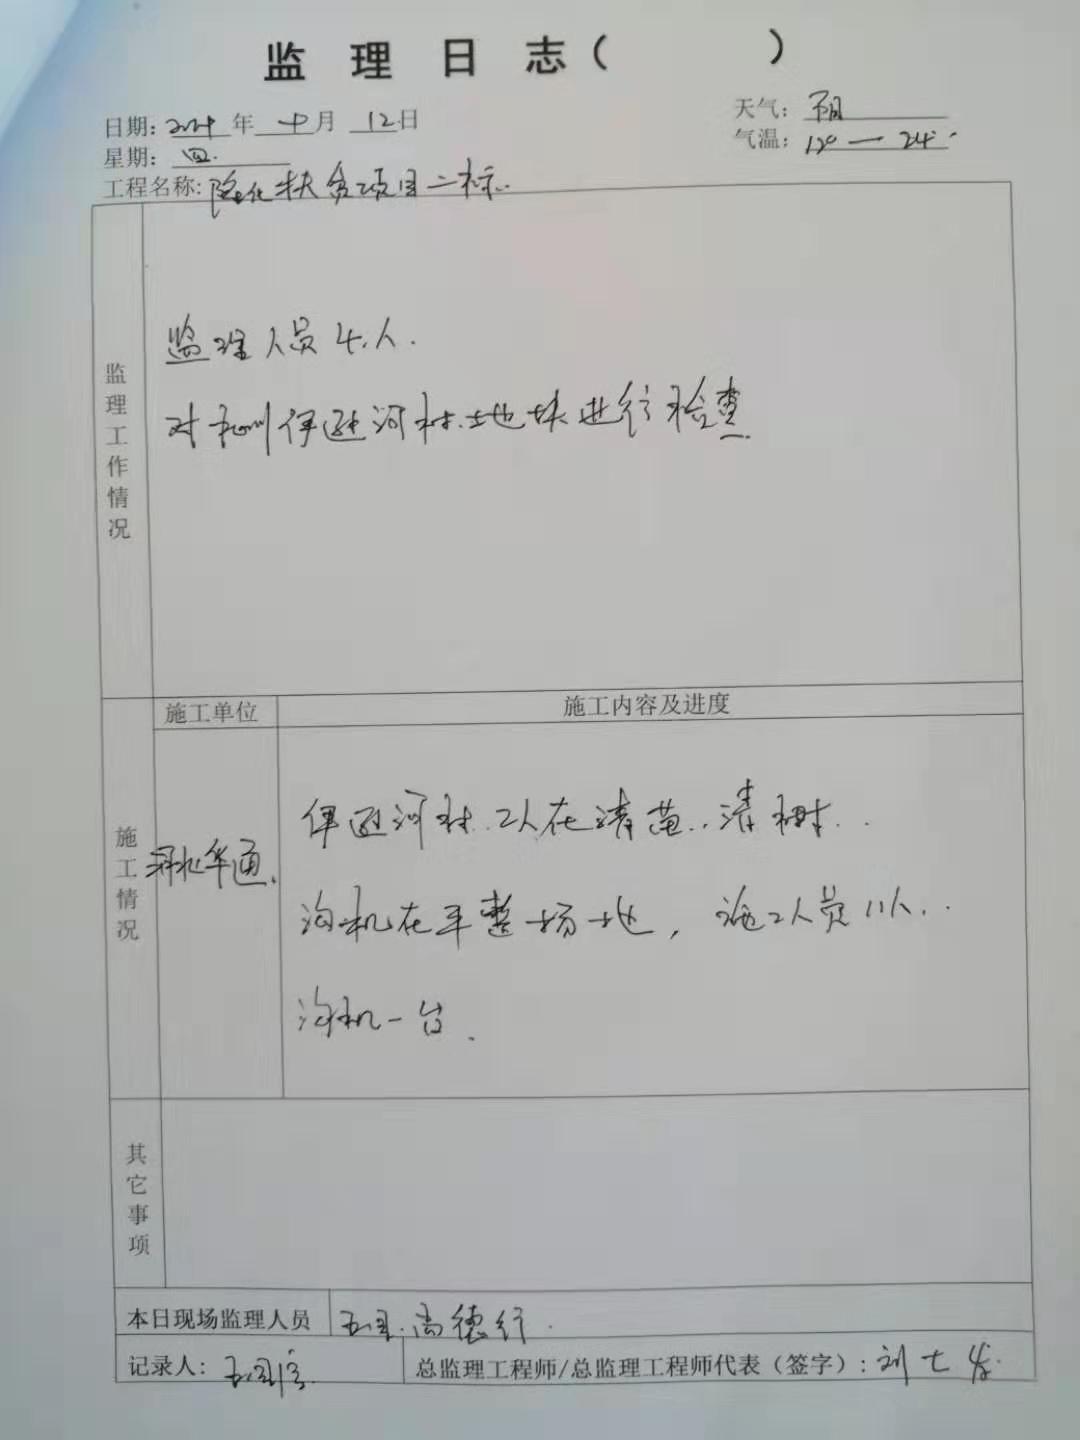 监 理 日 志（ ）
日期： 年 十 月 12 日
天气：阴
星期：四.
气温：12° — 24°
工程名称：隆化扶贫项目二标.
监理工作情况
监理人员4人.
对 伊逊河村.地块进行检查
施工单位
施工内容及进度
施工情况
河北华通.
伊逊河村.工人在清苗..清树..
沟机在平整场地，施工人员11人..
沟机一台.
其它事项
本日现场监理人员 尚德行.
记录人：
总监理工程师/总监理工程师代表（签字）：刘七